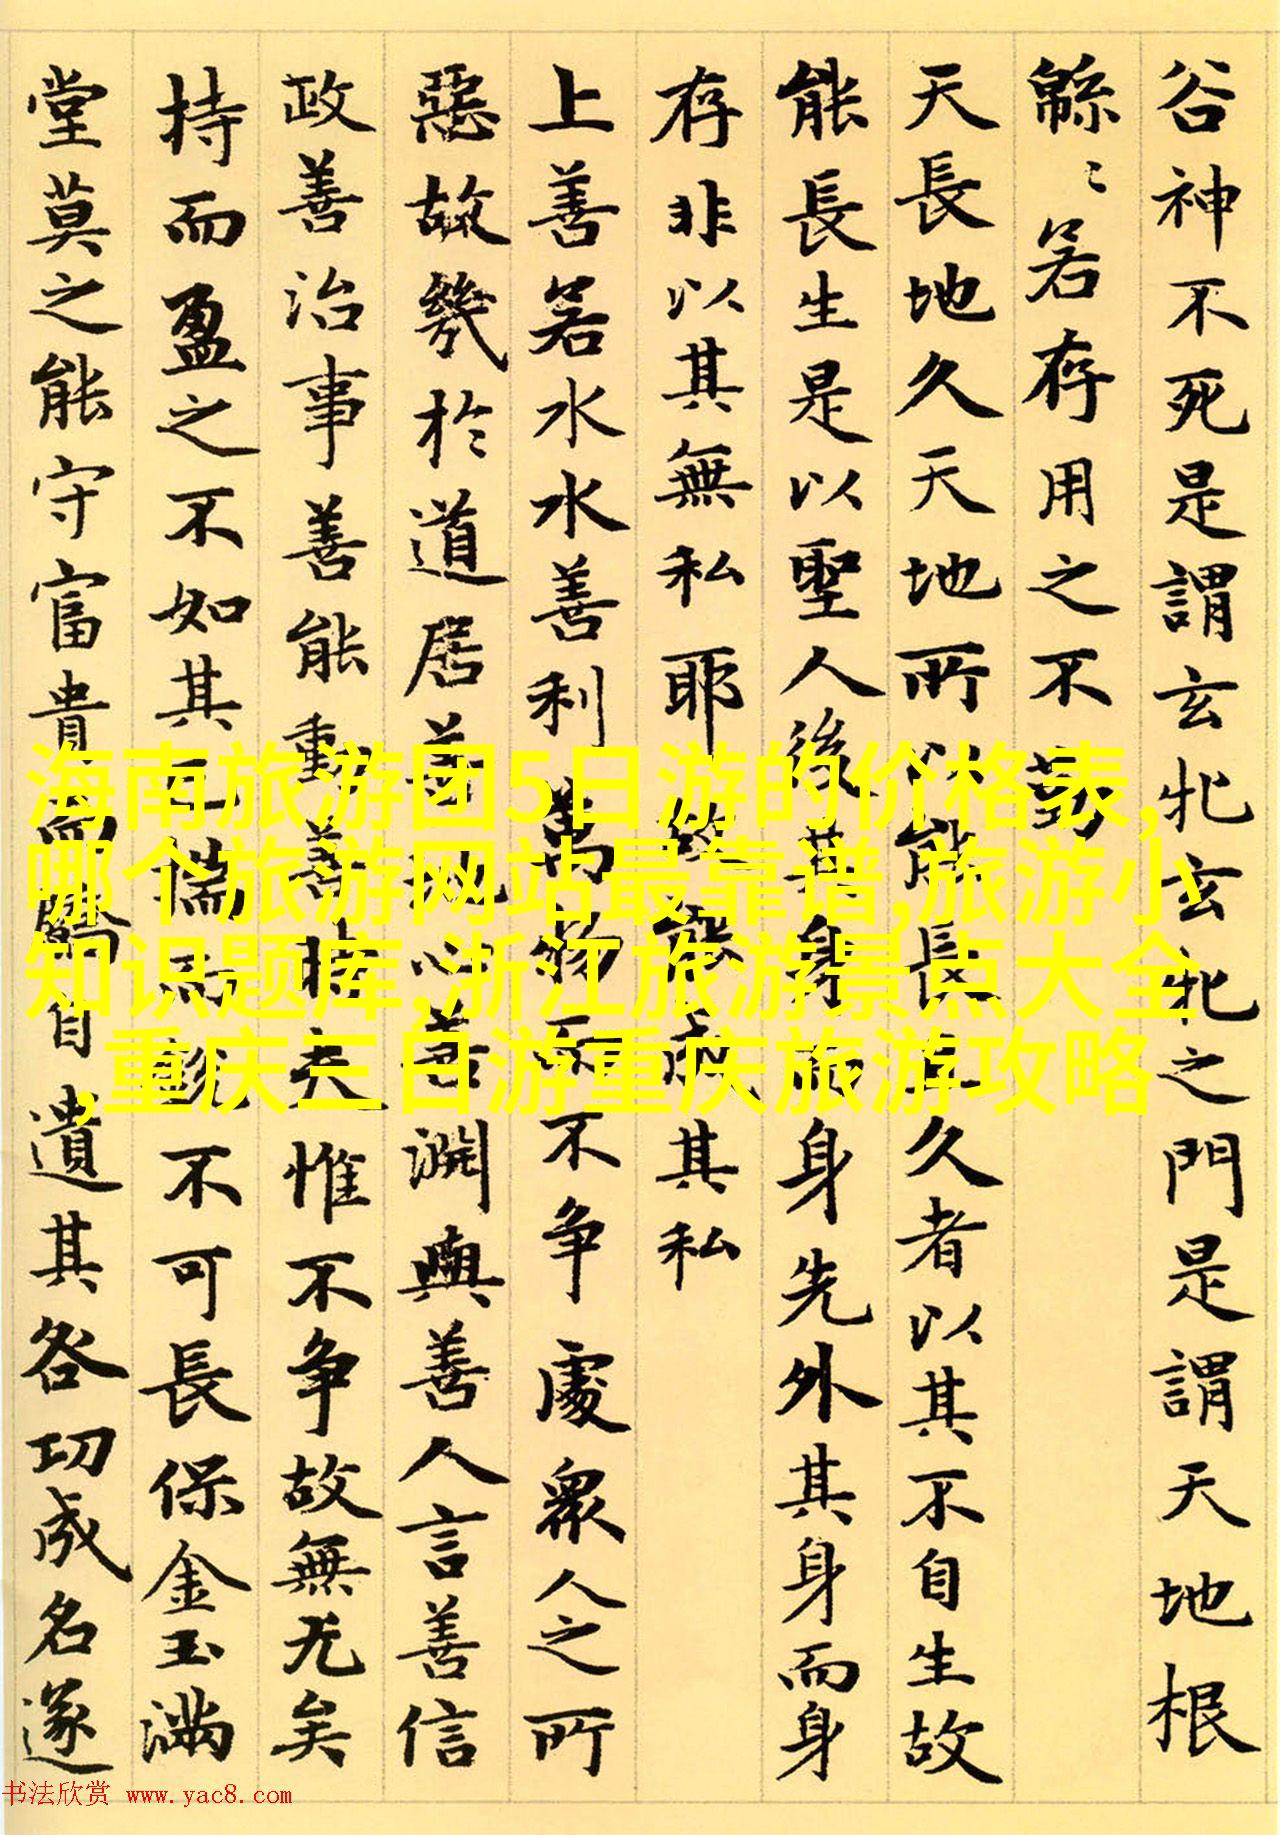 谷神不死是謂玄牝玄牝之門是謂天地根
緜〻若存用之不勤
天長地久天地所以能長且久者以其不自生故
能長生是以聖人後其身而身先外其身而身
存非以其無私耶故能成其私
上善若水水善利萬物而不争處衆人之所
惡故幾於道居善地心善淵與善人言善信
政善治事善能動善時夫惟不争故無尤矣
持而盈之不如其已揣而銳不可長保金玉滿
堂莫之能守富貴而驕自遺其咎功成名遂
海南旅游团5日游的价格表,
哪个旅游网站最靠谱,旅游小
知识题库,浙江旅游景点大全
,重庆三日游重庆旅游攻略
书法欣赏 www.yac8.com